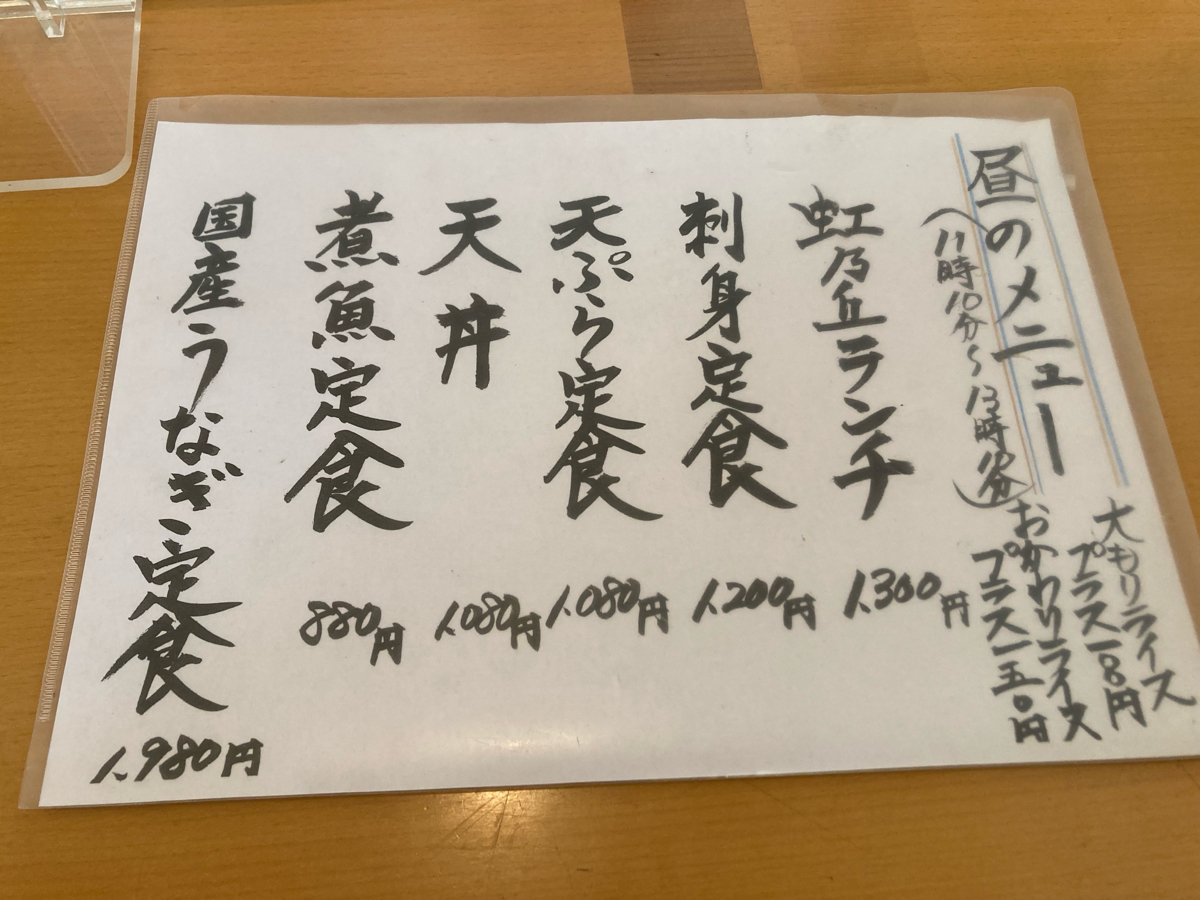 昼のメニュー
(11時10分~13時30分)
大もりライス
プラス一〇〇円
おかわりライス
プラス一五〇円
虹乃丘ランチ
1,300円
刺身定食
1,200円
天ぷら定食
1,080円
天丼
1,080円
煮魚定食
880円
国産うなぎ定食
1,980円